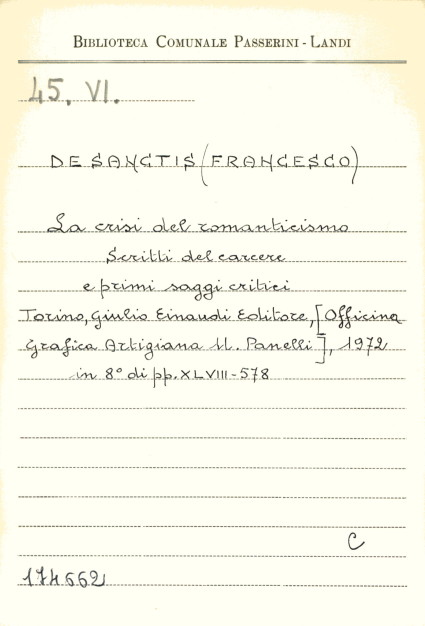 BIBLIOTECA COMUNALE PASSERINI - LANDI
45. VI.
DE SANCTIS (FRANCESCO)
La crisi del romanticismo
Scritti del carcere
e primi saggi critici
Torino, Giulio Einaudi Editore, [Officina
Grafica Artigiana U. Panelli], 1972
in 8° di pp. XLVIII-578
C
174662